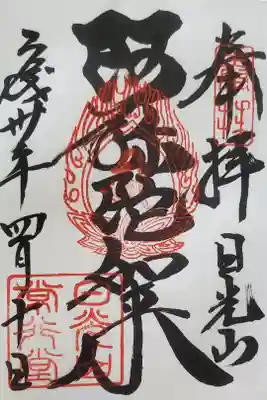 奉拝 日光山
阿弥陀如来
平成卅年 四月十日
日光山
常行堂